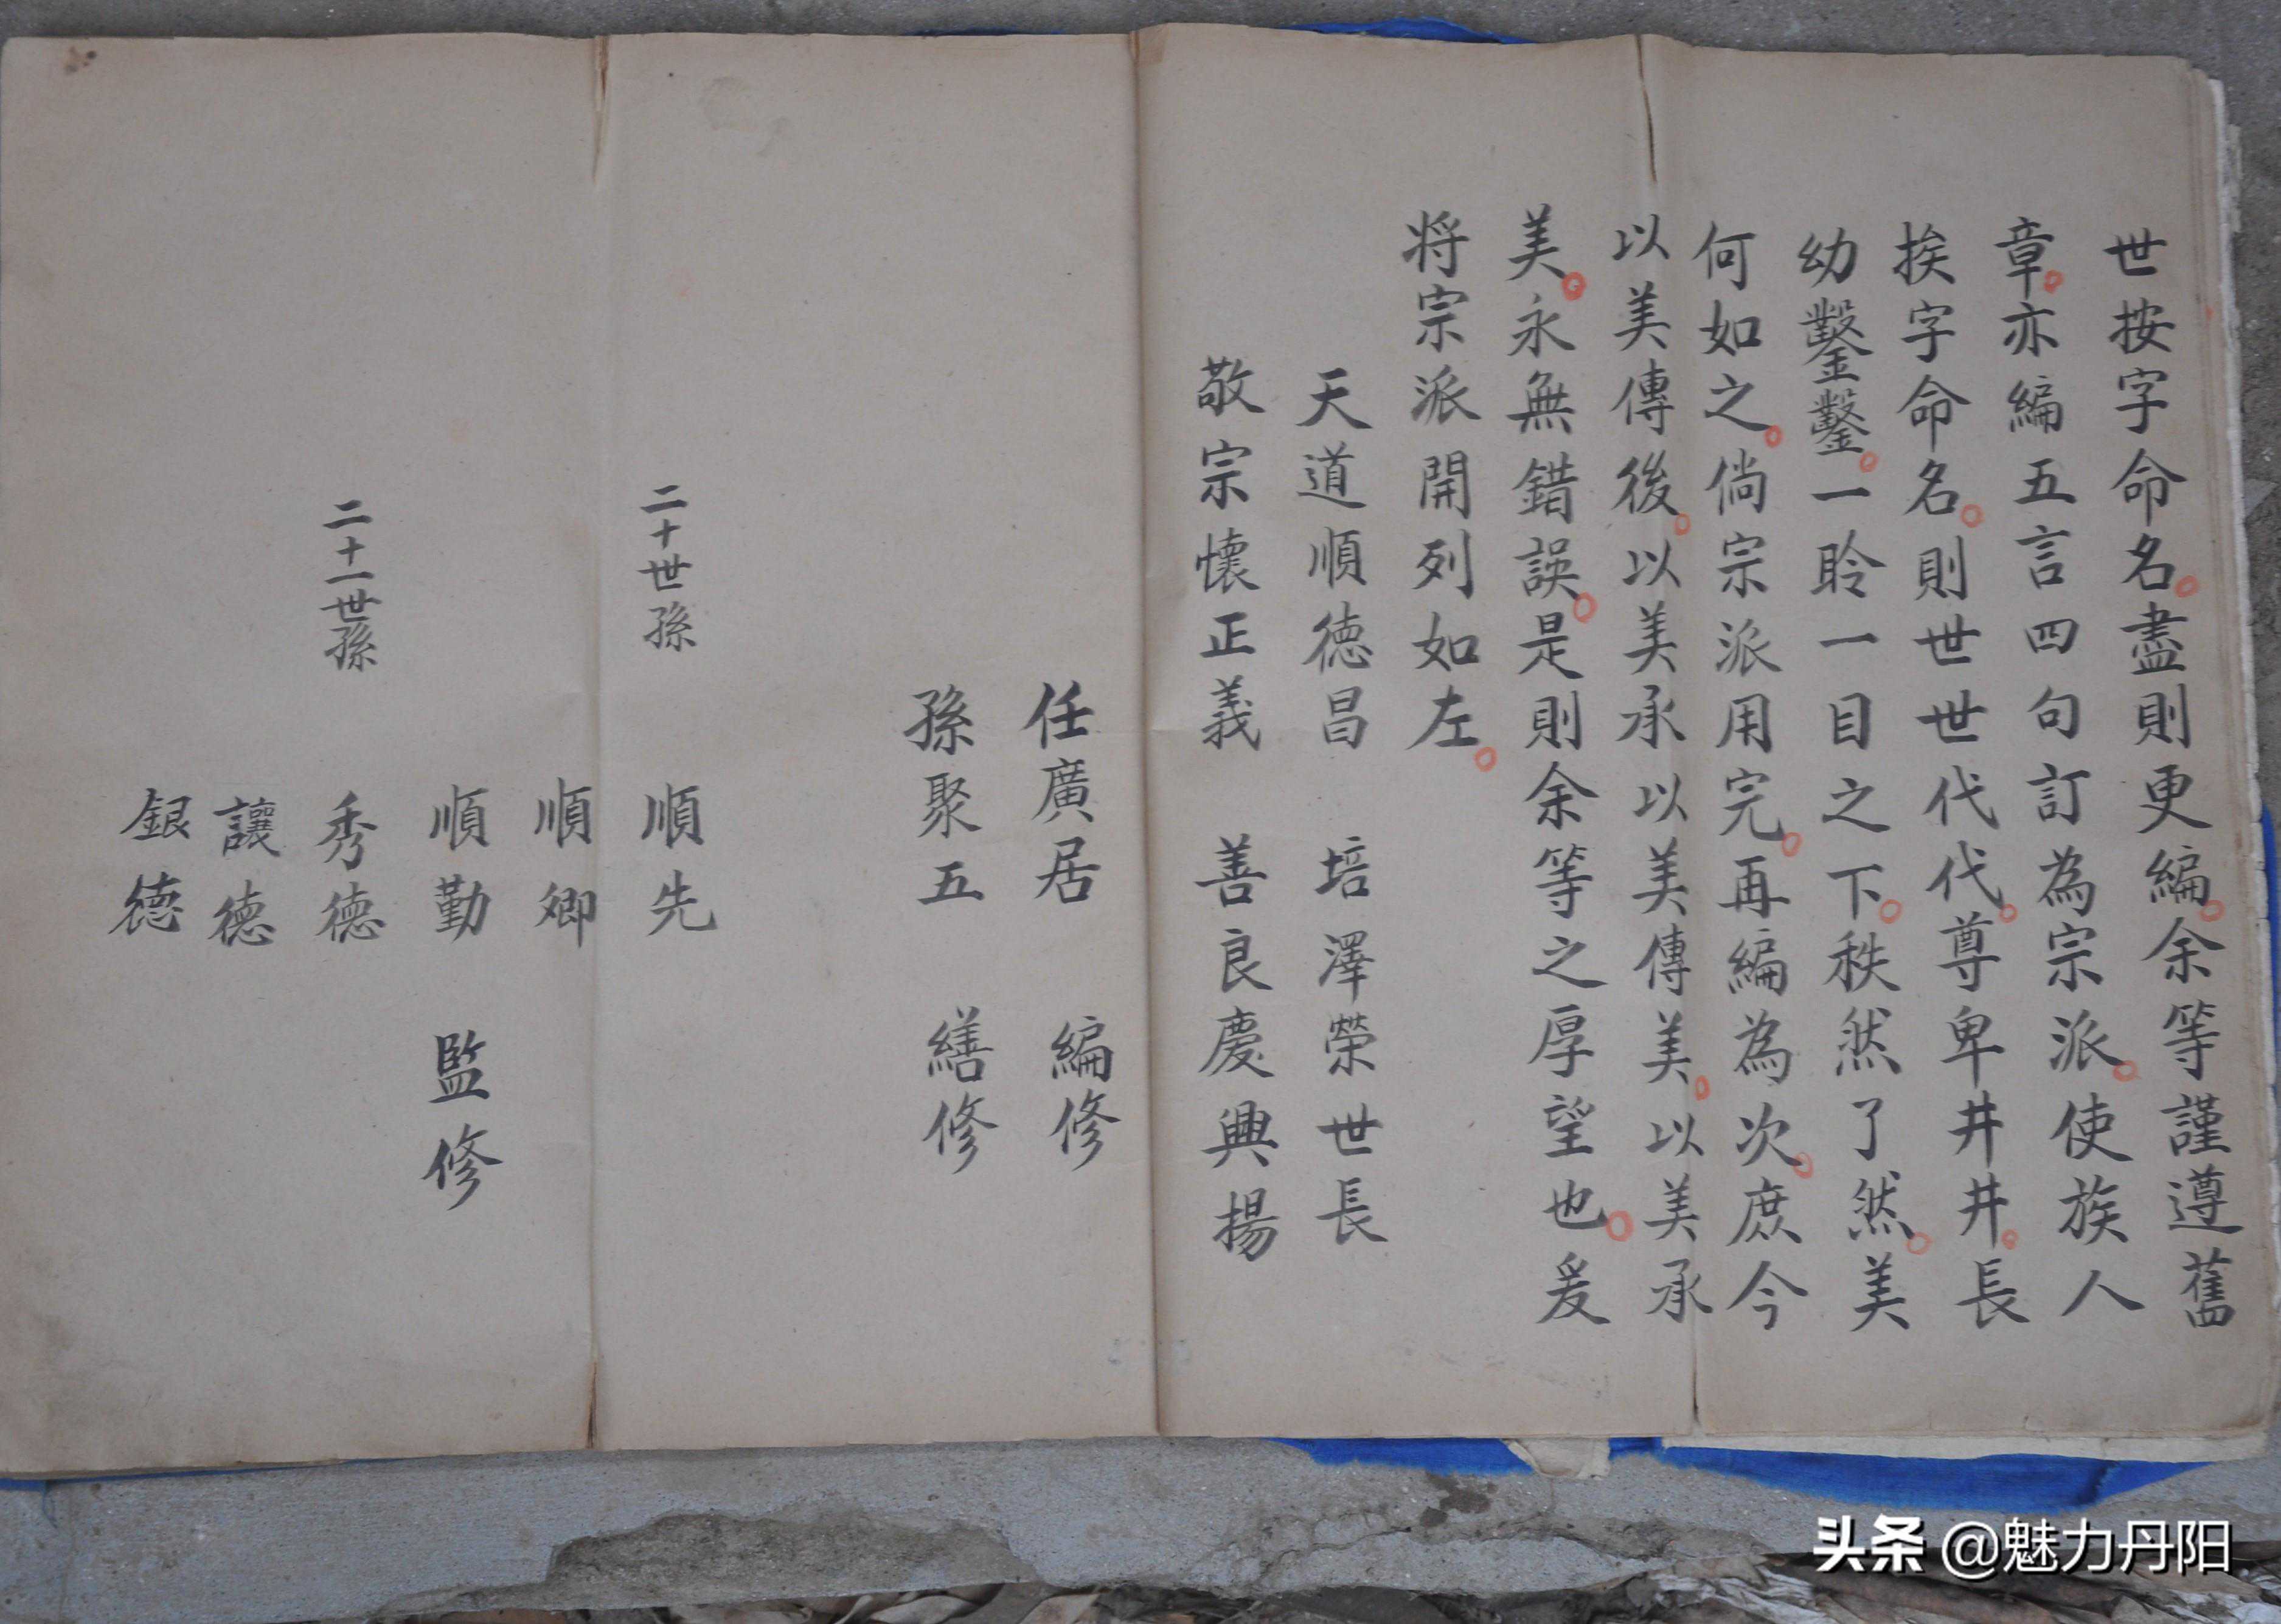 世按字命名。盡則更編。余等謹遵舊
章。亦編五言四句訂為宗派。使族人
挨字命名。則世世代代。尊卑井井。長
幼鑿鑿。一聆一目之下。秩然了然。美
何如之。倘宗派用完。再編為次。庶今
以美傳後。以美承以美傳美。以美承
美。永無錯誤。是則余等之厚望也。爰
将宗派開列如左。
天道順德昌 培澤榮世長
敬宗懷正義 善良慶興揚
任廣居 編修
孫聚五 繕修
二十世孫 順先
順卿
順勤 監修
二十一世孫 秀德
讓德
銀德
头条 @魅力丹阳